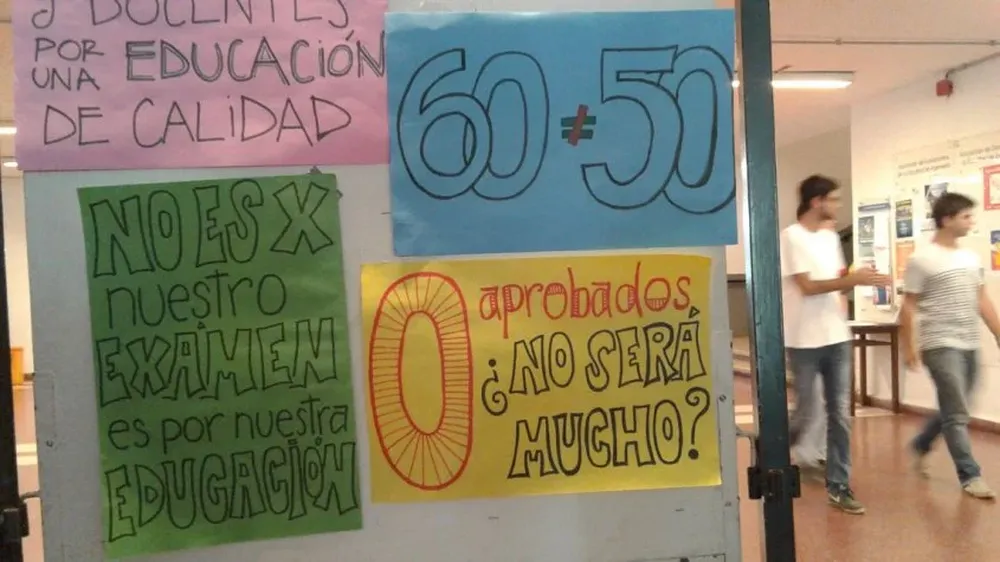 y DOCENTES
POR UNA EDUCACIÓN
DE CALIDAD
60 ≠ 50
NO ES X
nuestro
EXÁMEN
es por nuestra
EDUCACIÓN
0 aprobados
¿NO SERÁ
MUCHO?